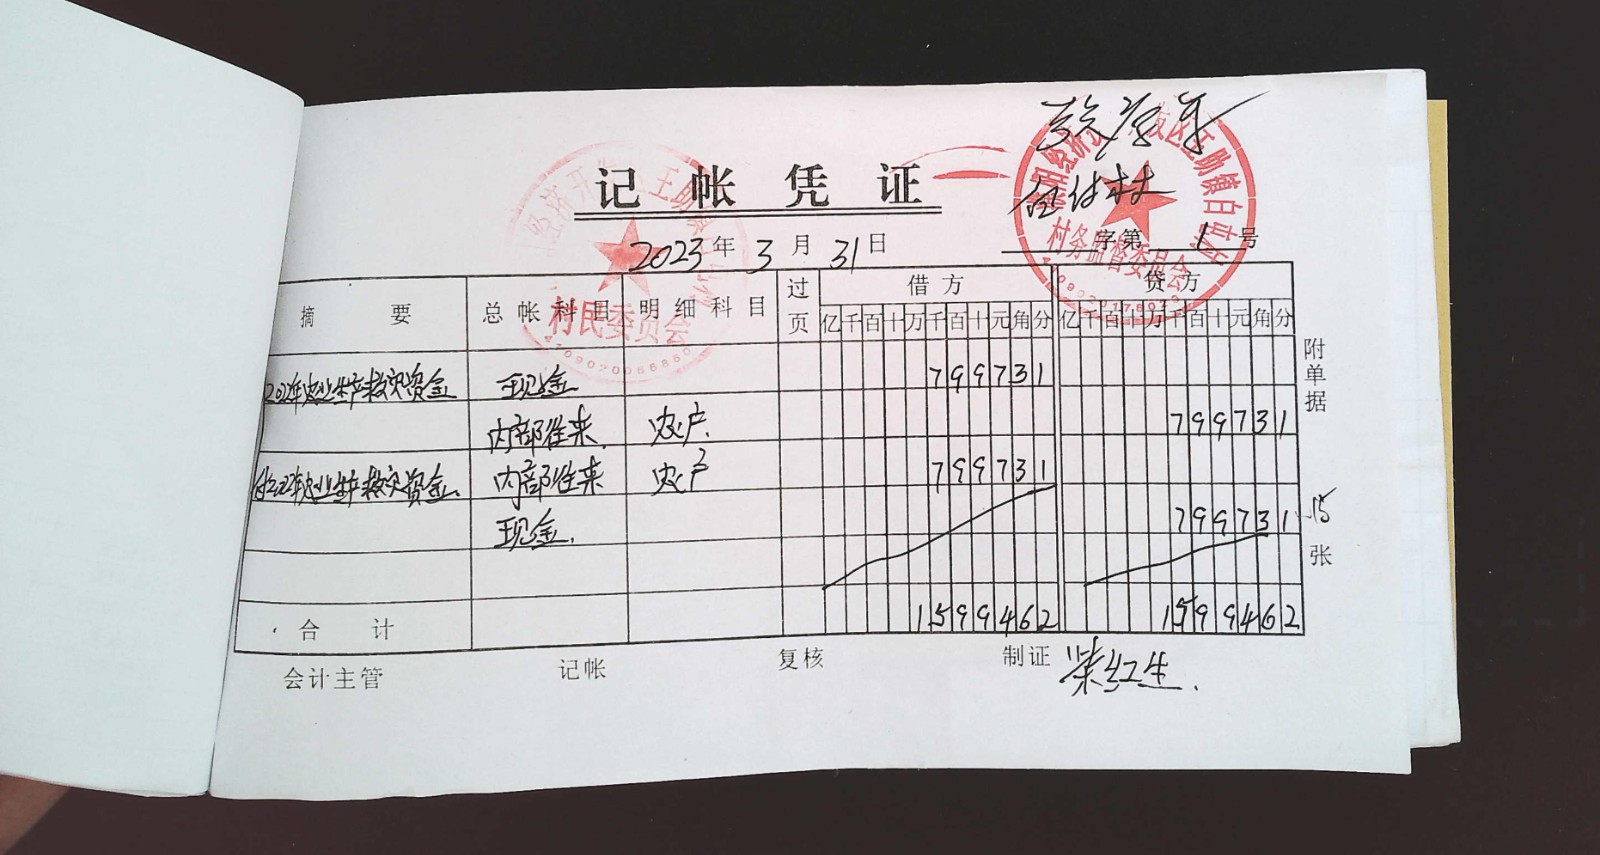 记帐凭证
2023年3月31日
字第 1号
村民委员会
村务监督委员会
摘要 总帐科目 明细科目 过页 借方 贷方
亿千百十万千百十元角分 亿千百十万千百十元角分
2022年农业生产救灾资金 现金 799731
内部往来 农户 799731
付2022年农业生产救灾资金 内部往来 农户 799731
现金 799731
合计 1599462 1599462
附单据 15 张
会计主管 记帐 复核 制证 柴红生